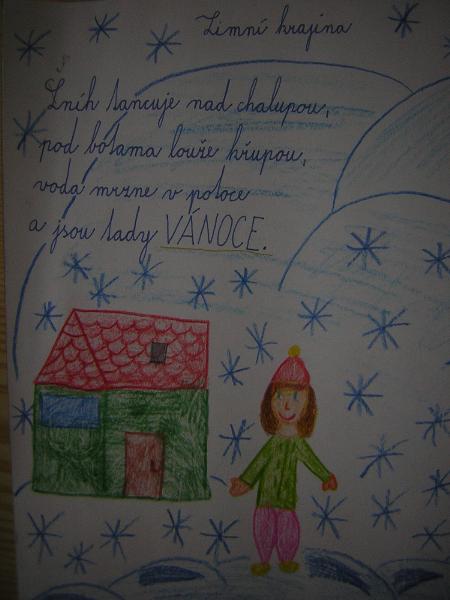 Zimní krajina
Sníh tancuje nad chalupou,
pod botama louže křupou,
voda mrzne v potoce
a jsou tady VÁNOCE.